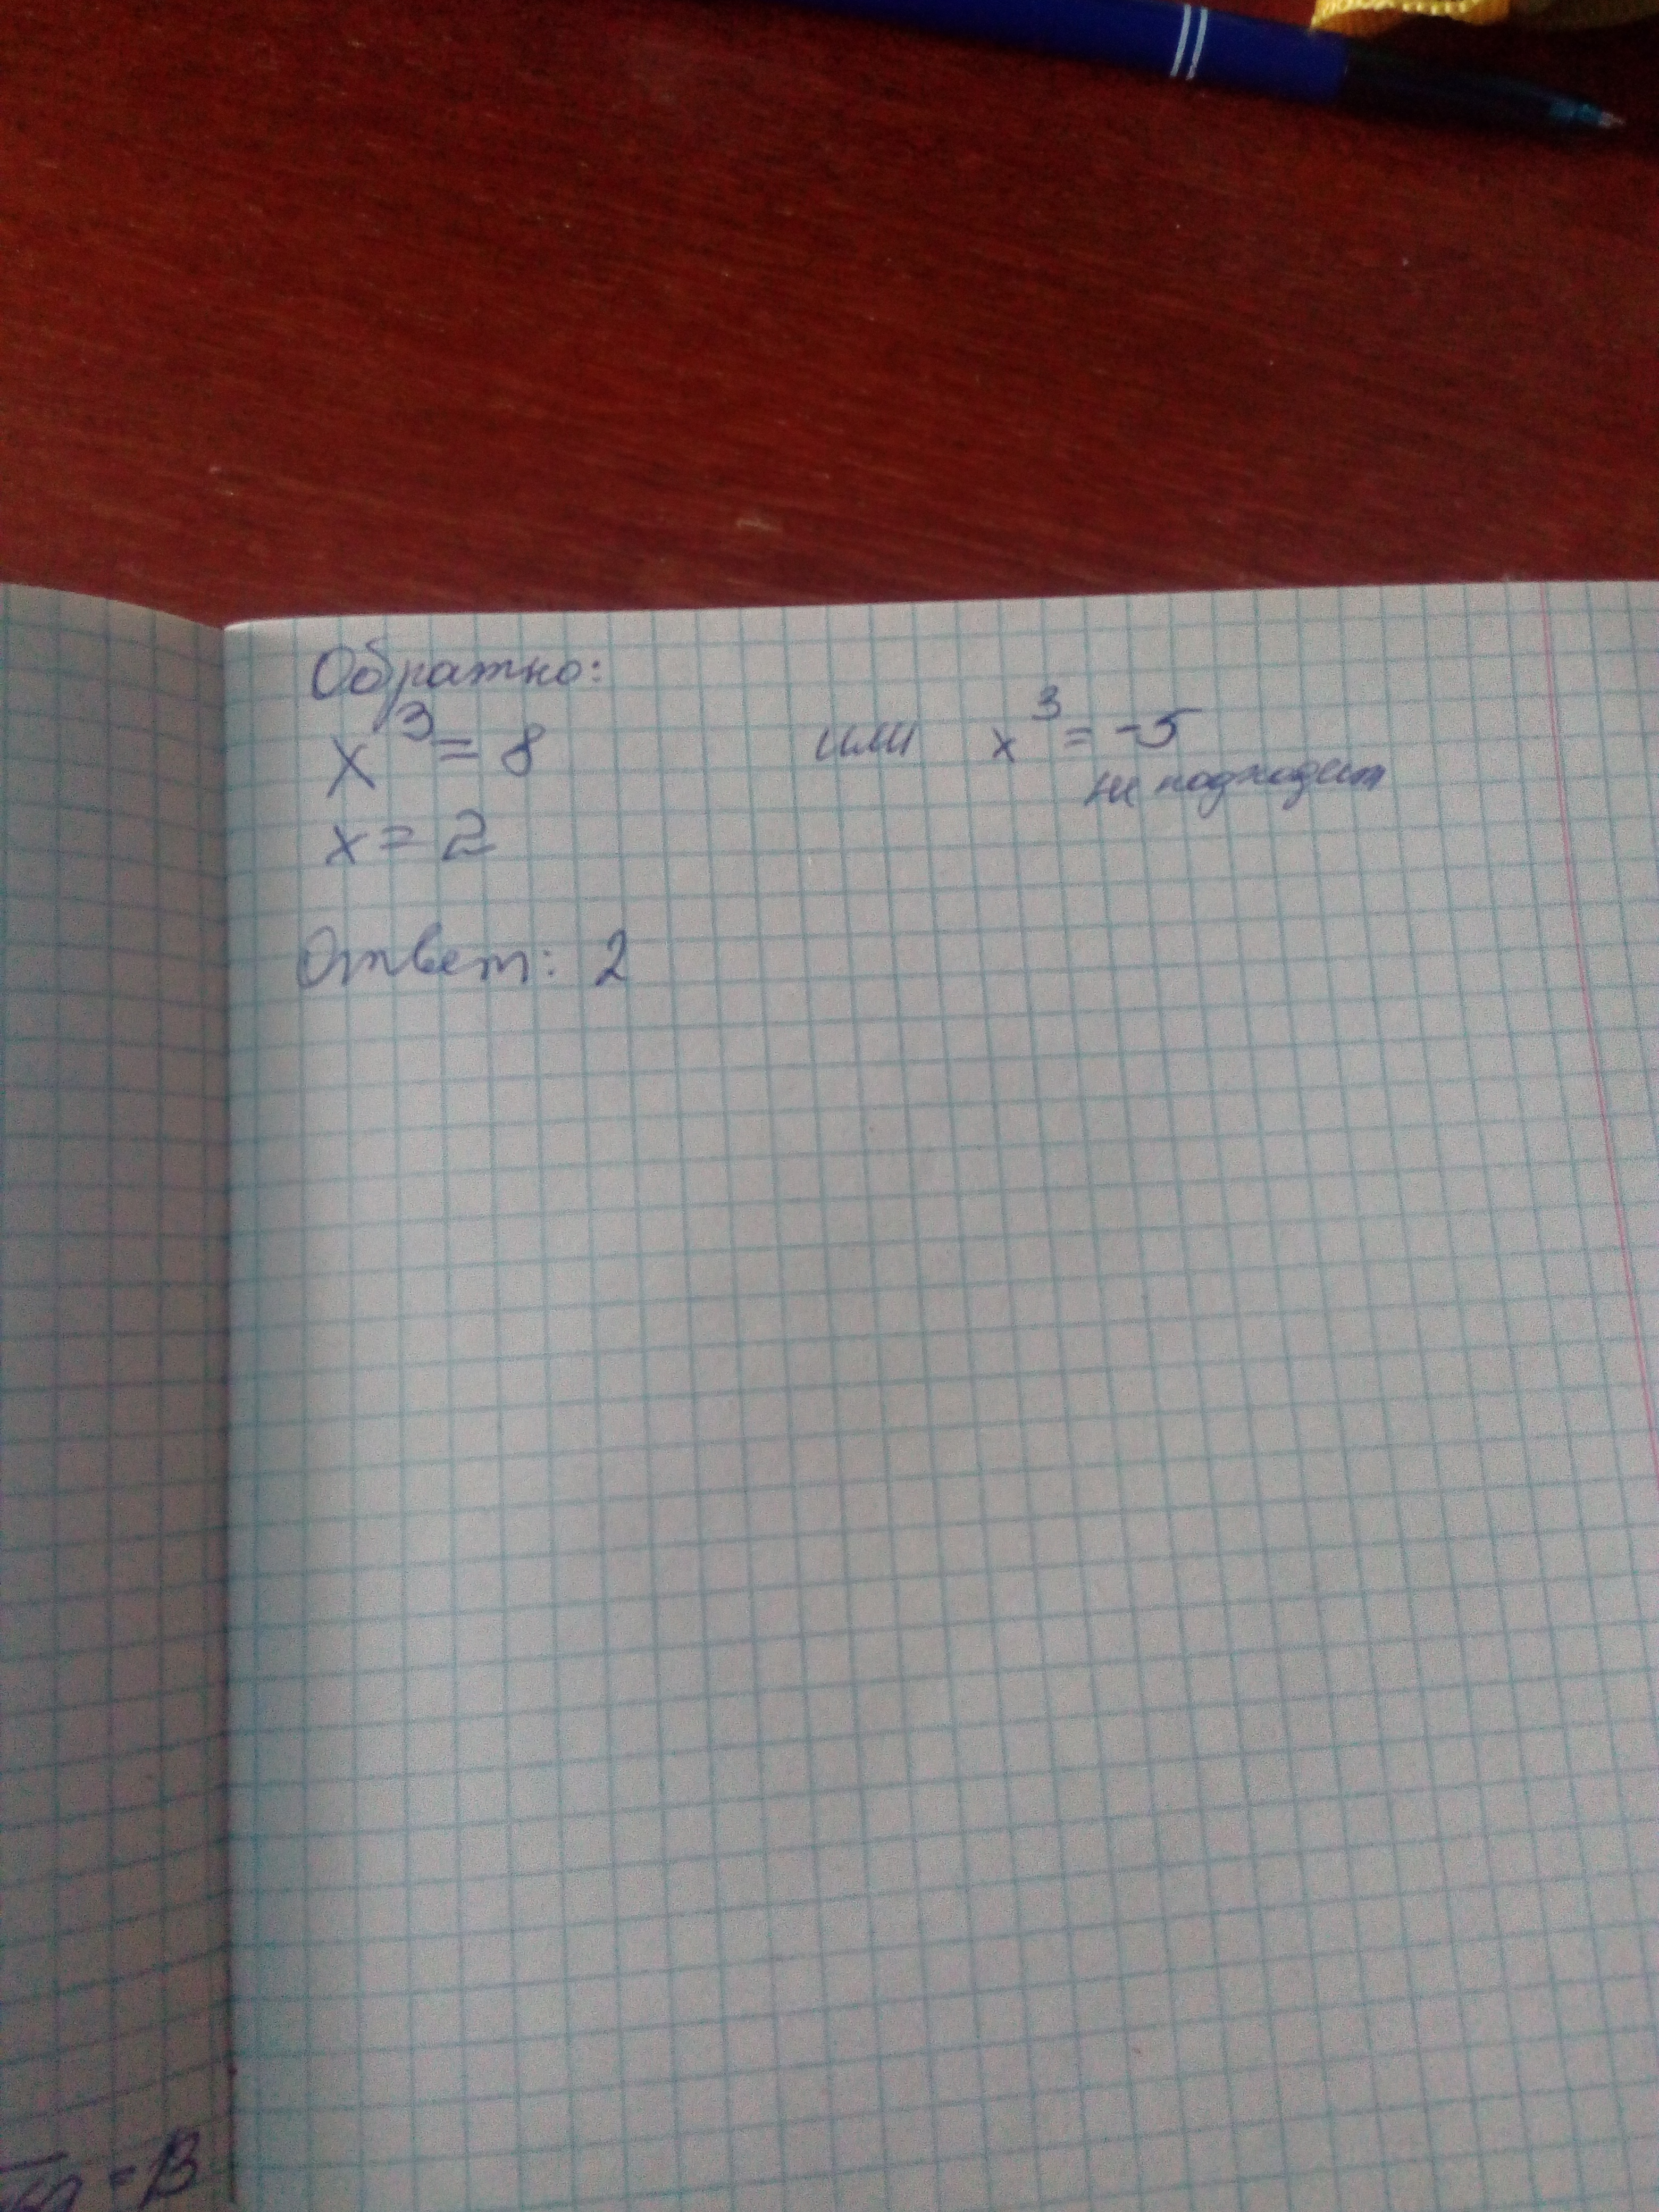 Обратно:
x³ = 8 или x³ = -5
не подходит
x = 2
Ответ: 2
= 13